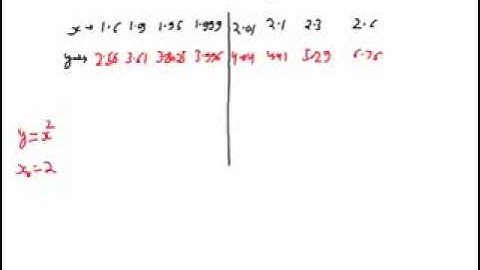 x → 1.6 1.9 1.95 1.999 2.01 2.1 2.3 2.6
y → 2.56 3.61 3.8025 3.996 4.04 4.41 5.29 6.76
y = x²
x₀ = 2